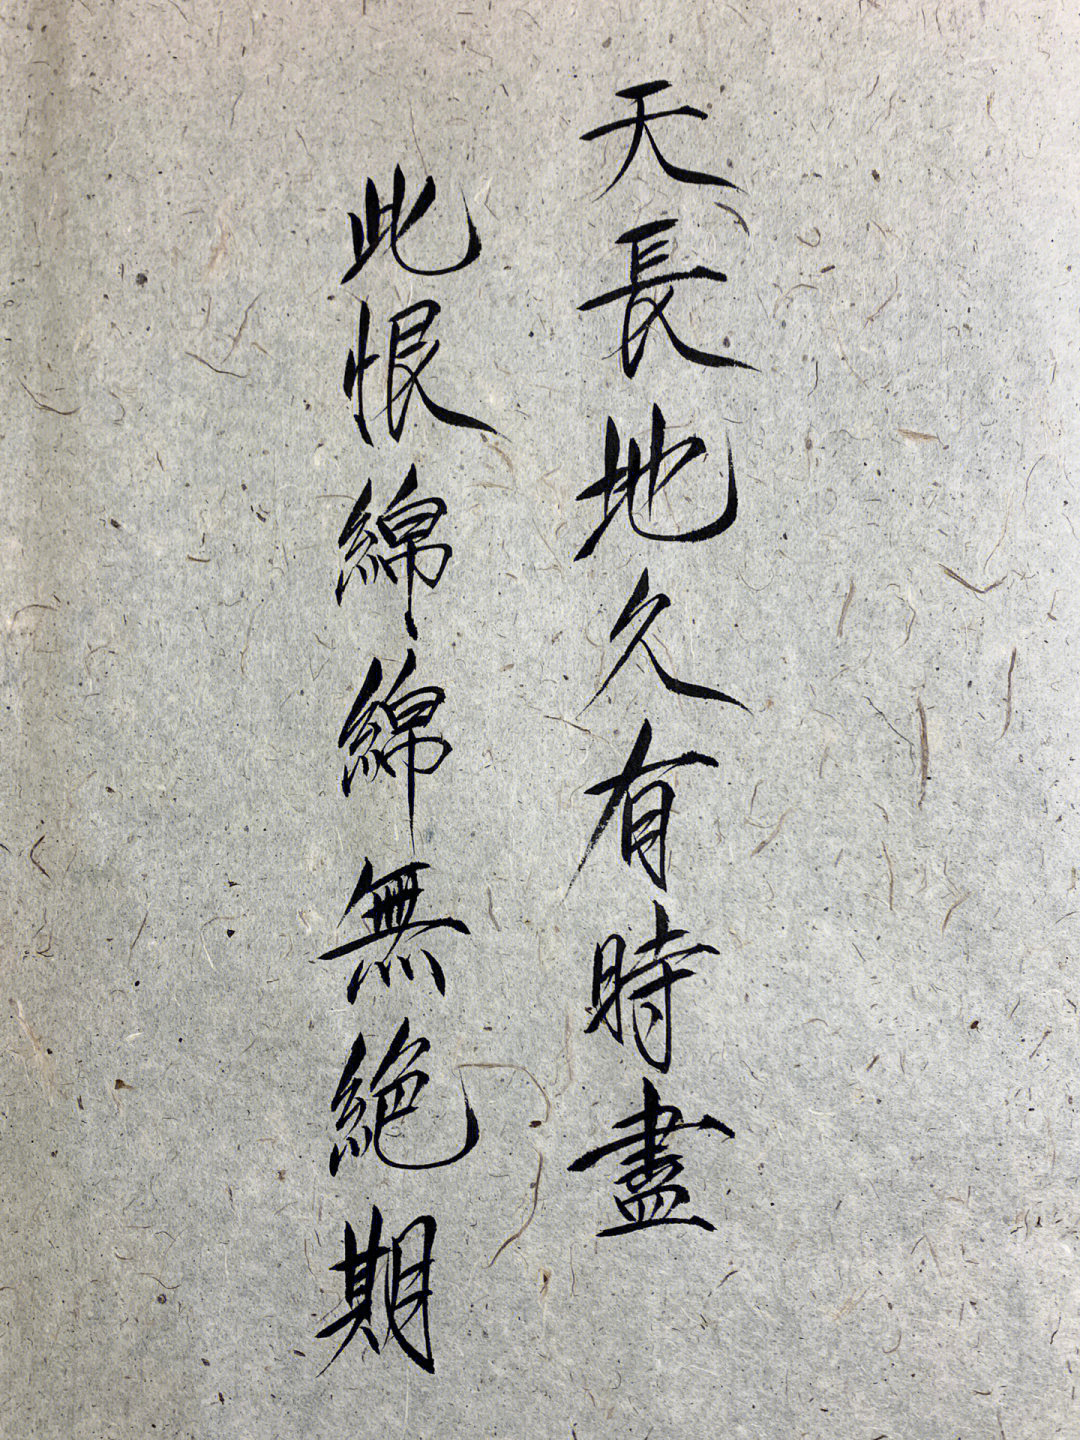 天長地久有時盡
此恨綿綿無絶期